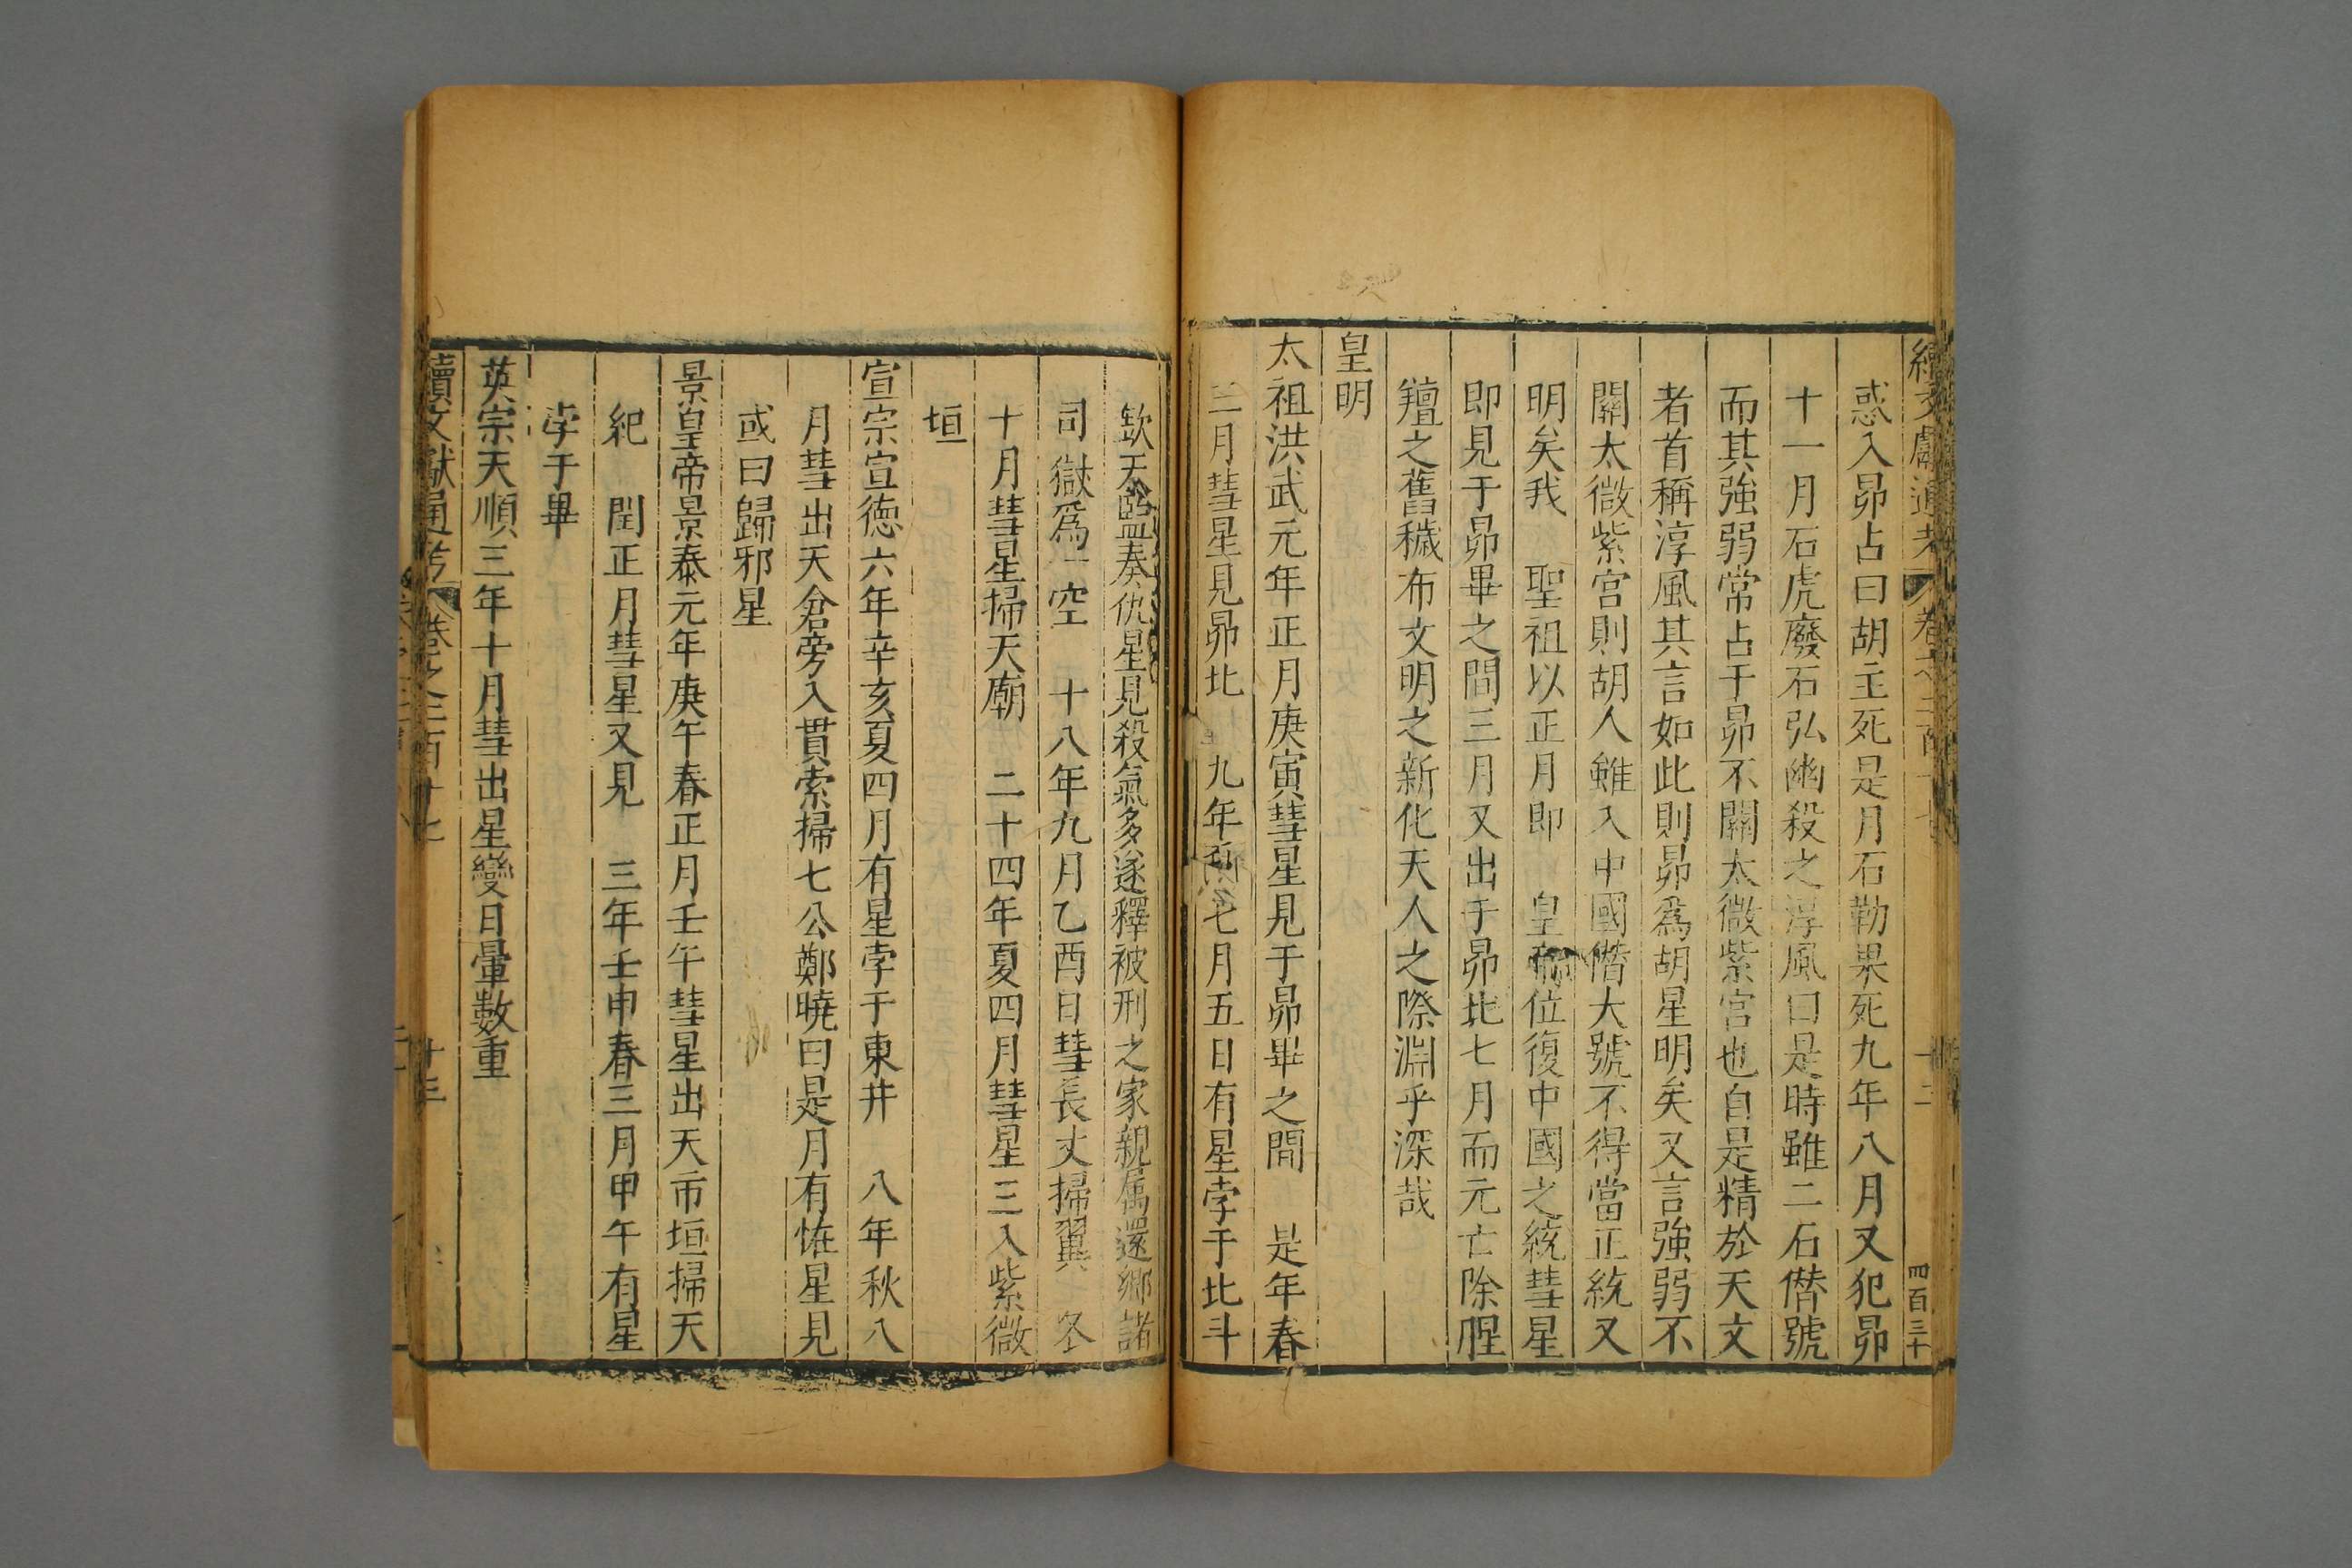 續文獻通考 卷之二百十七 十二 四百三十
惑入昴占曰胡主死是月石勒果死九年八月又犯昴
十一月石虎廢石弘幽殺之淳風曰是時雖二石僣號
而其強弱常占于昴不關太微紫宮也自是精於天文
者首稱淳風其言如此則昴爲胡星明矣又言強弱不
關太微紫宮則胡人雖入中國僣大號不得當正統又
明矣我 聖祖以正月即 皇帝位復中國之統彗星
即見于昴畢之間三月又出于昴北七月而元亡除腥
羶之舊穢布文明之新化天人之際淵乎深哉
皇明
太祖洪武元年正月庚寅彗星見于昴畢之間 是年春
三月彗星見昴北 九年 七月五日有星孛于北斗
欽天監奏仇星見殺氣多遂釋被刑之家親属還鄉諸
司獄爲一空 十八年九月乙酉日彗長丈掃翼 冬
十月彗星掃天廟 二十四年夏四月彗星三入紫微
垣
宣宗宣德六年辛亥夏四月有星孛于東井 八年秋八
月彗出天倉旁入貫索掃七公鄭曉曰是月有恠星見
或曰歸邪星
景皇帝景泰元年庚午春正月壬午彗星出天市垣掃天
紀 閏正月彗星又見 三年壬申春三月甲午有星
孛于畢
英宗天順三年十月彗出星變日暈數重
續文獻通考 卷之二百十七 十三